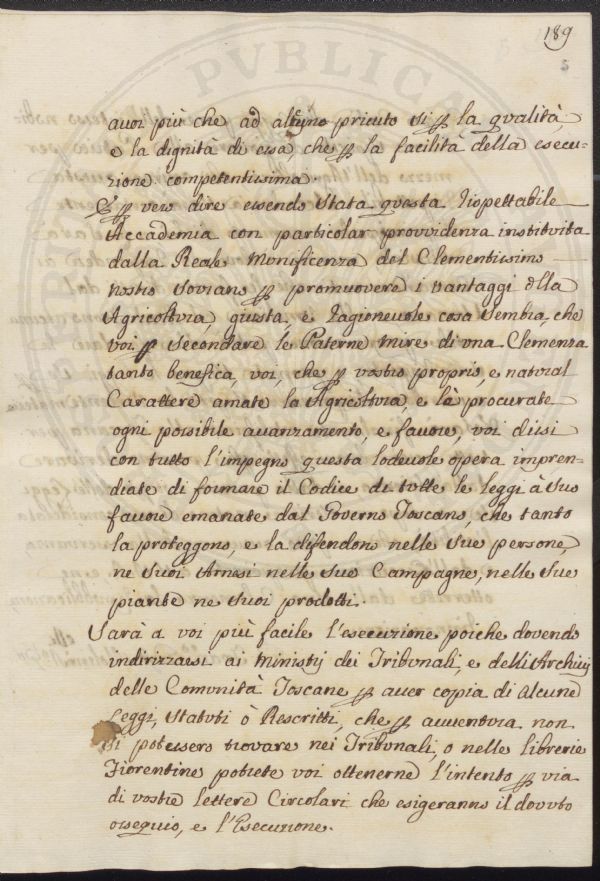 PVBLICA
189
avoi più che ad altuno privato sì ꝑ la qvalità,
e la dignità di essa, che ꝑ la facilità della esecu-
zione competentissima.
E ꝑ vero dire essendo stata questa rispettabile
Accademia con particolar provvidenza institvita
dalla Reale Monificenza del Clementissimo
nostro sovrano ꝑ promuovere i vantaggi della
Agricoltvra, giusta, e ragionevole cosa sembra, che
voi ꝑ secondare le Paterne mire di vna Clemenza
tanto benefica, voi, che ꝑ vostro proprio, e natvral
Carattere amate la Agricoltvra, e le procurate
ogni possibile avanzamento, e favore, voi dissi
con tutto l'impegno questa lodevole opera impren-
diate di formare il Codice di tvtte le leggi à suo
favore emanate dal Governo Toscano, che tanto
la proteggono, e la difendono nelle sue persone,
ne suoi Arnesi nelle sue Campagne, nelle sue
piante ne suoi prodotti.
Sarà a voi più facile l'esecuzione poiche dovendo
indirizzarsi ai ministri dei Tribvnali, e delli Archivij
delle Comvnità Toscane ꝑ aver copia di alcune
Leggi, Statvti ò Rescritti, che ꝑ avventvra non
si potessero trovare nei Tribvnali, o nelle librerie
Fiorentine potrete voi ottenerne l'intento ꝑ via
di vostre lettere Circolari che esigeranno il dovvto
ossequio, e l'Esecuzione.